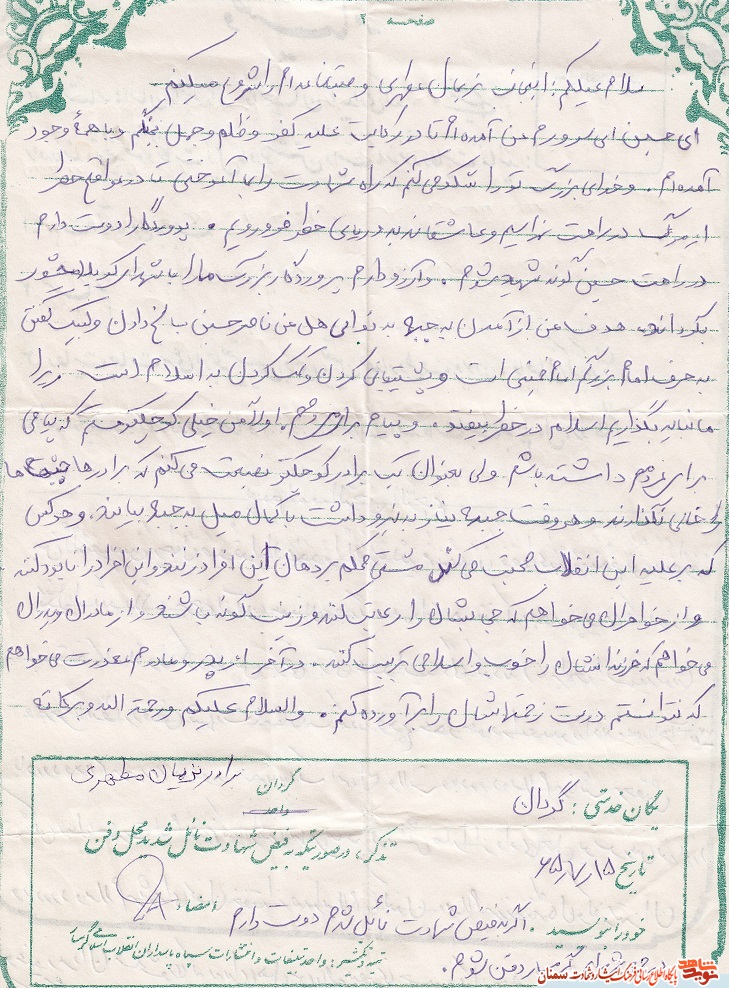 صفحه ۲
سلام علیکم: اینجانب نریمان مطهری وصیتنامه ام را شروع میکنم
ای حسین ای سرورم من آمده ام تا در رکابت علیه کفر و ظلم و جهل بجنگم و با همهٔ وجود
آمده ام. و خدای بزرگ تو را شکر می کنم که راه شهادت را به ما آموختی تا در مواقع خطر
از مرگ در راهت نهراسیم و عاشقانه به دریای خطر فرو رویم. پروردگارا دوست دارم
در راهت حسین گونه شهید شوم. و آرزو دارم پروردگار بزرگ ما را با شهدای کربلا محشور
بگرداند. هدف من از آمدن به جبهه به ندای هل من ناصر حسین پاسخ دادن و لبیک گفتن
به حرف امام بزرگم امام خمینی است و پشتیبانی کردن و کمک کردن به اسلام است زیرا
ما نباید بگذاریم اسلام در خطر بیفتد. و پیام برای مردم. اولاً من خیلی کوچکتر هستم که پیامی
برای مردم داشته باشم ولی بعنوان یک برادر کوچکتر نصیحت می کنم که برادرها جبهه ها
را خالی نگذارند و هر وقت جبهه نیاز به نیرو داشت با کمال میل به جبهه بیایند. و هر کس
که بر علیه این انقلاب صحبت می کند مشتی محکم بر دهان این افراد زنند و این افراد را نابود کنند
و از خواهران می خواهم که حجابشان را رعایت کنند و زینب گونه باشند و از مادران و پدران
می خواهم که فرزندانشان را خوب و اسلامی تربیت کنند. در آخر از پدر و مادرم معذرت می خواهم
که نتوانستم درست زحمتشان را برآورده کنم. والسلام علیکم ورحمة الله وبرکاته
برادر نریمان مطهری
یگان خدمتی: گردان
گردان
واحد
تذکر، در صورتیکه به فیض شهادت نائل شدید محل دفن
تاریخ ۱۵
۶۵
امضاء
خود را بنویسید. اگر به فیض شهادت نائل شدم دوست دارم
تهیه و تکثیر: واحد تبلیغات و انتشارات سپاه پاسداران انقلاب اسلامی گرمسار
در دفن شوم.
نوید شاهد
پایگاه اطلاع رسانی فرهنگ ایثار و شهادت سمنان